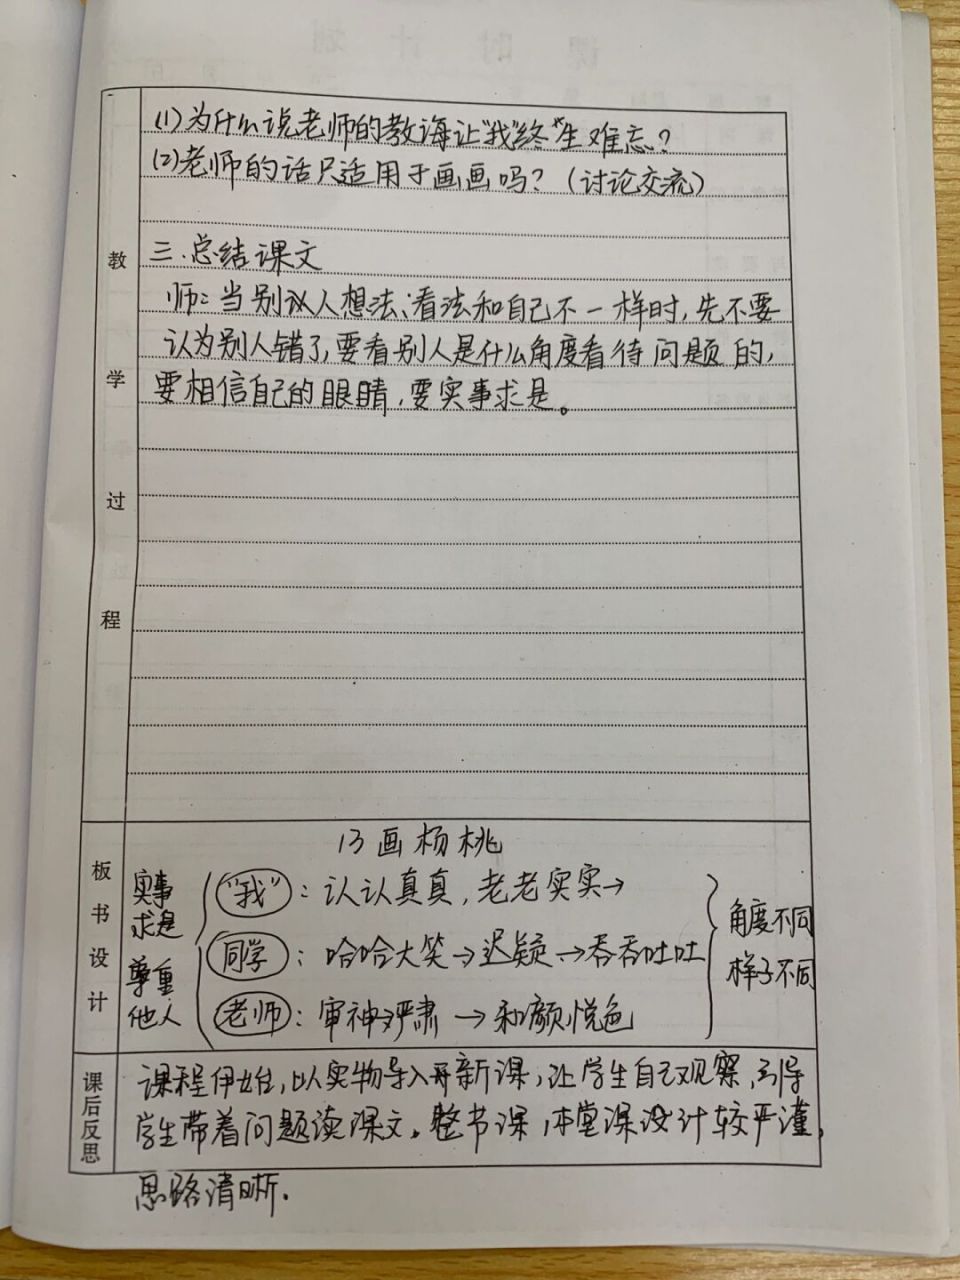 (1)为什么说老师的教诲让"我"终"生难忘?
(2)老师的话只适用于画画吗?(讨论交流)
三.总结课文
师:当别议人想法、看法和自己不一样时,先不要
认为别人错了,要看别人是什么角度看待问题的,
要相信自己的眼睛,要实事求是。
教学过程
13画杨桃
板书设计
实事
求是
尊重
他人
"我":认认真真,老老实实→
同学:哈哈大笑→迟疑→吞吞吐吐
老师:审神严肃→和颜悦色
角度不同
样子不同
课后反思
课程伊始,以实物导入再新课,让学生自己观察,引导
学生带着问题读课文。整书课,本堂课设计较严谨,
思路清晰.